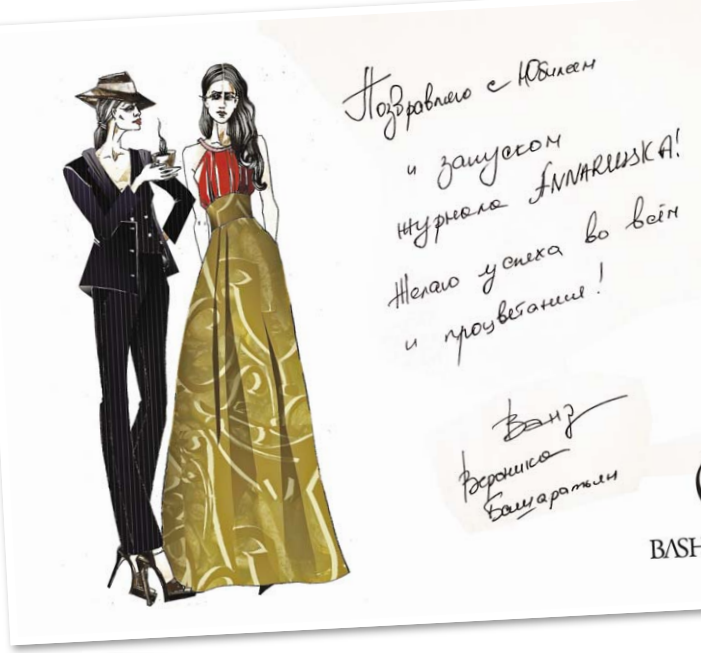 Поздравляю с Юбилеем
и запуском
журнала ANNARUSSKA!
Желаю успеха во всём
и процветания!
Вероника
Башаратьян
BASH